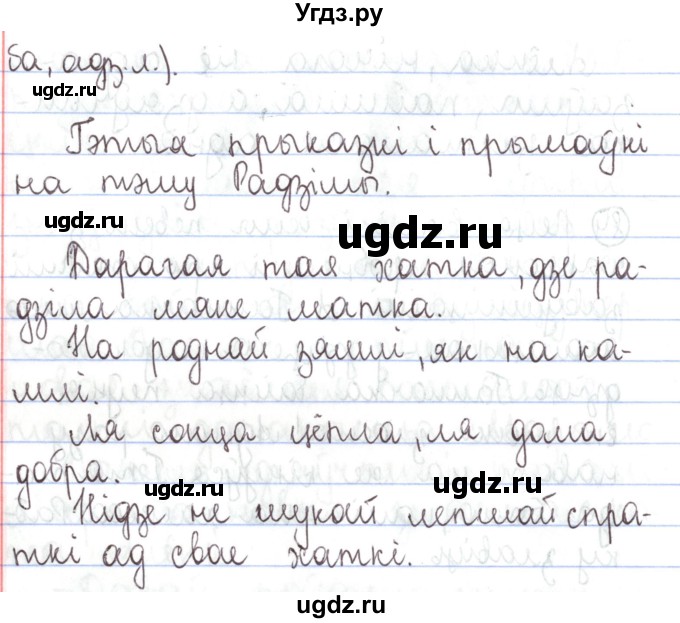 Угдз.ру
ба, адз.л.).
ugdz.ru
Гэтыя прыказкі і прымаўкі
на тэму Радзімы.
ugdz.ru
ugdz.ru
Дарагая тая хатка, дзе ра-
дзіла мяне матка.
На роднай зямлі, як на ка-
млі.
Ля сонца цёпла, ля дома
добра.
ugdz.ru
ugdz.ru
Нідзе не шукай лепшай спра-
ткі ад свае хаткі.
ugdz.ru